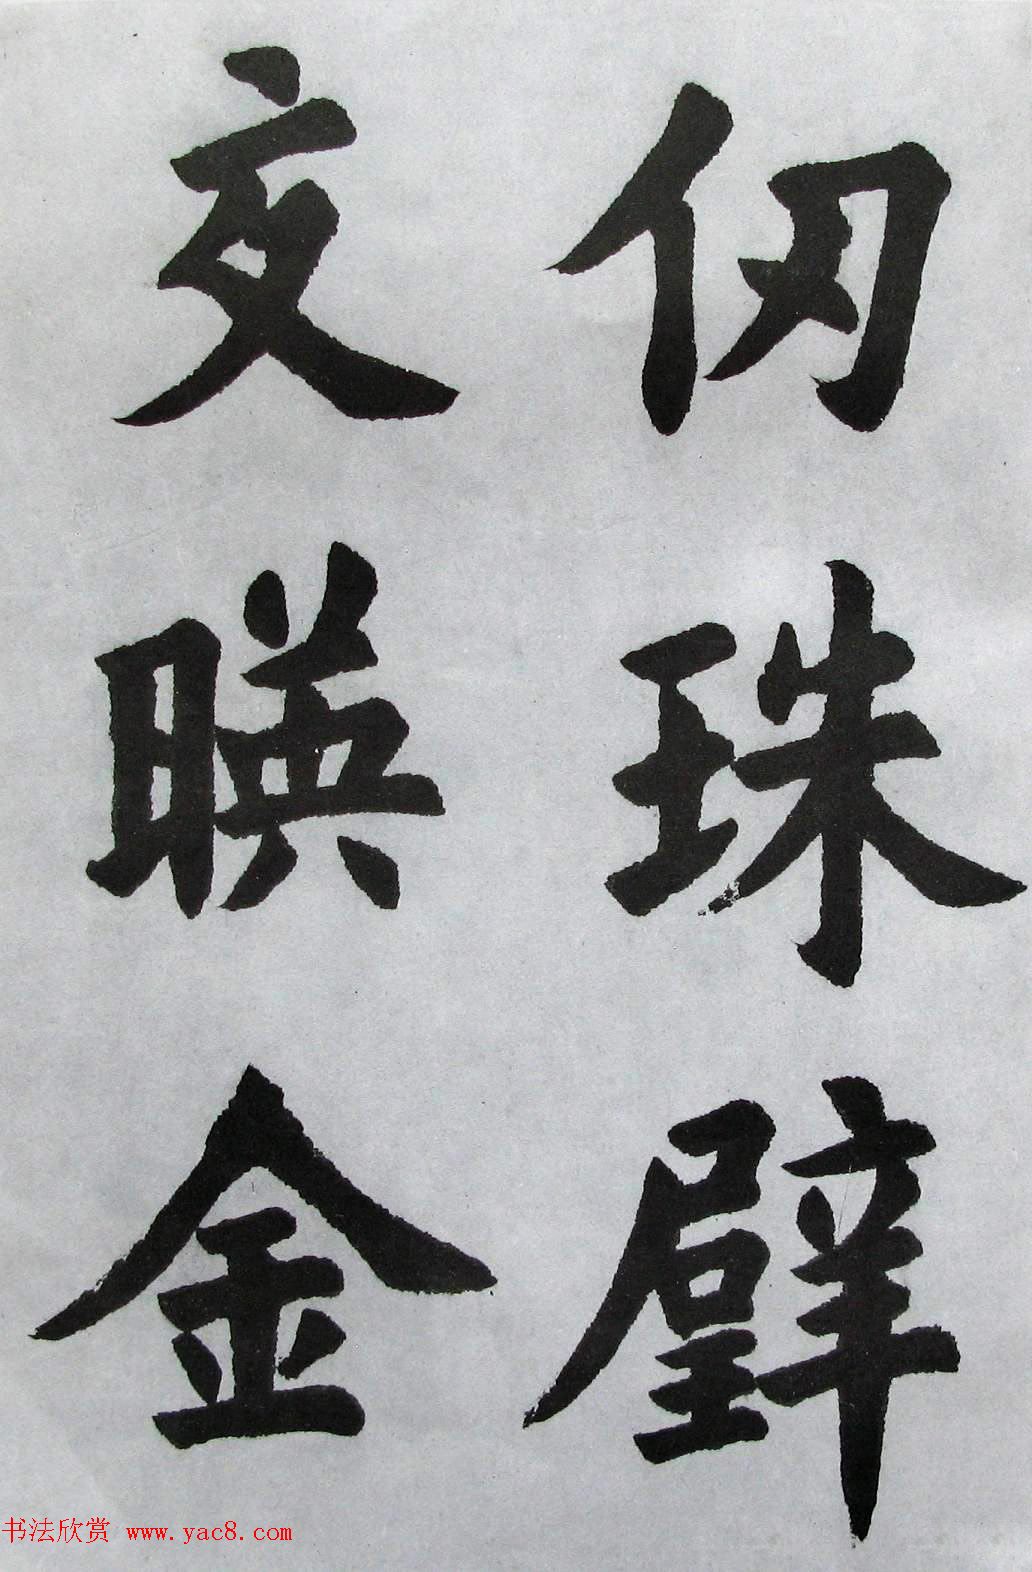 仞珠璧
交暎金
书法欣赏 www.yac8.com